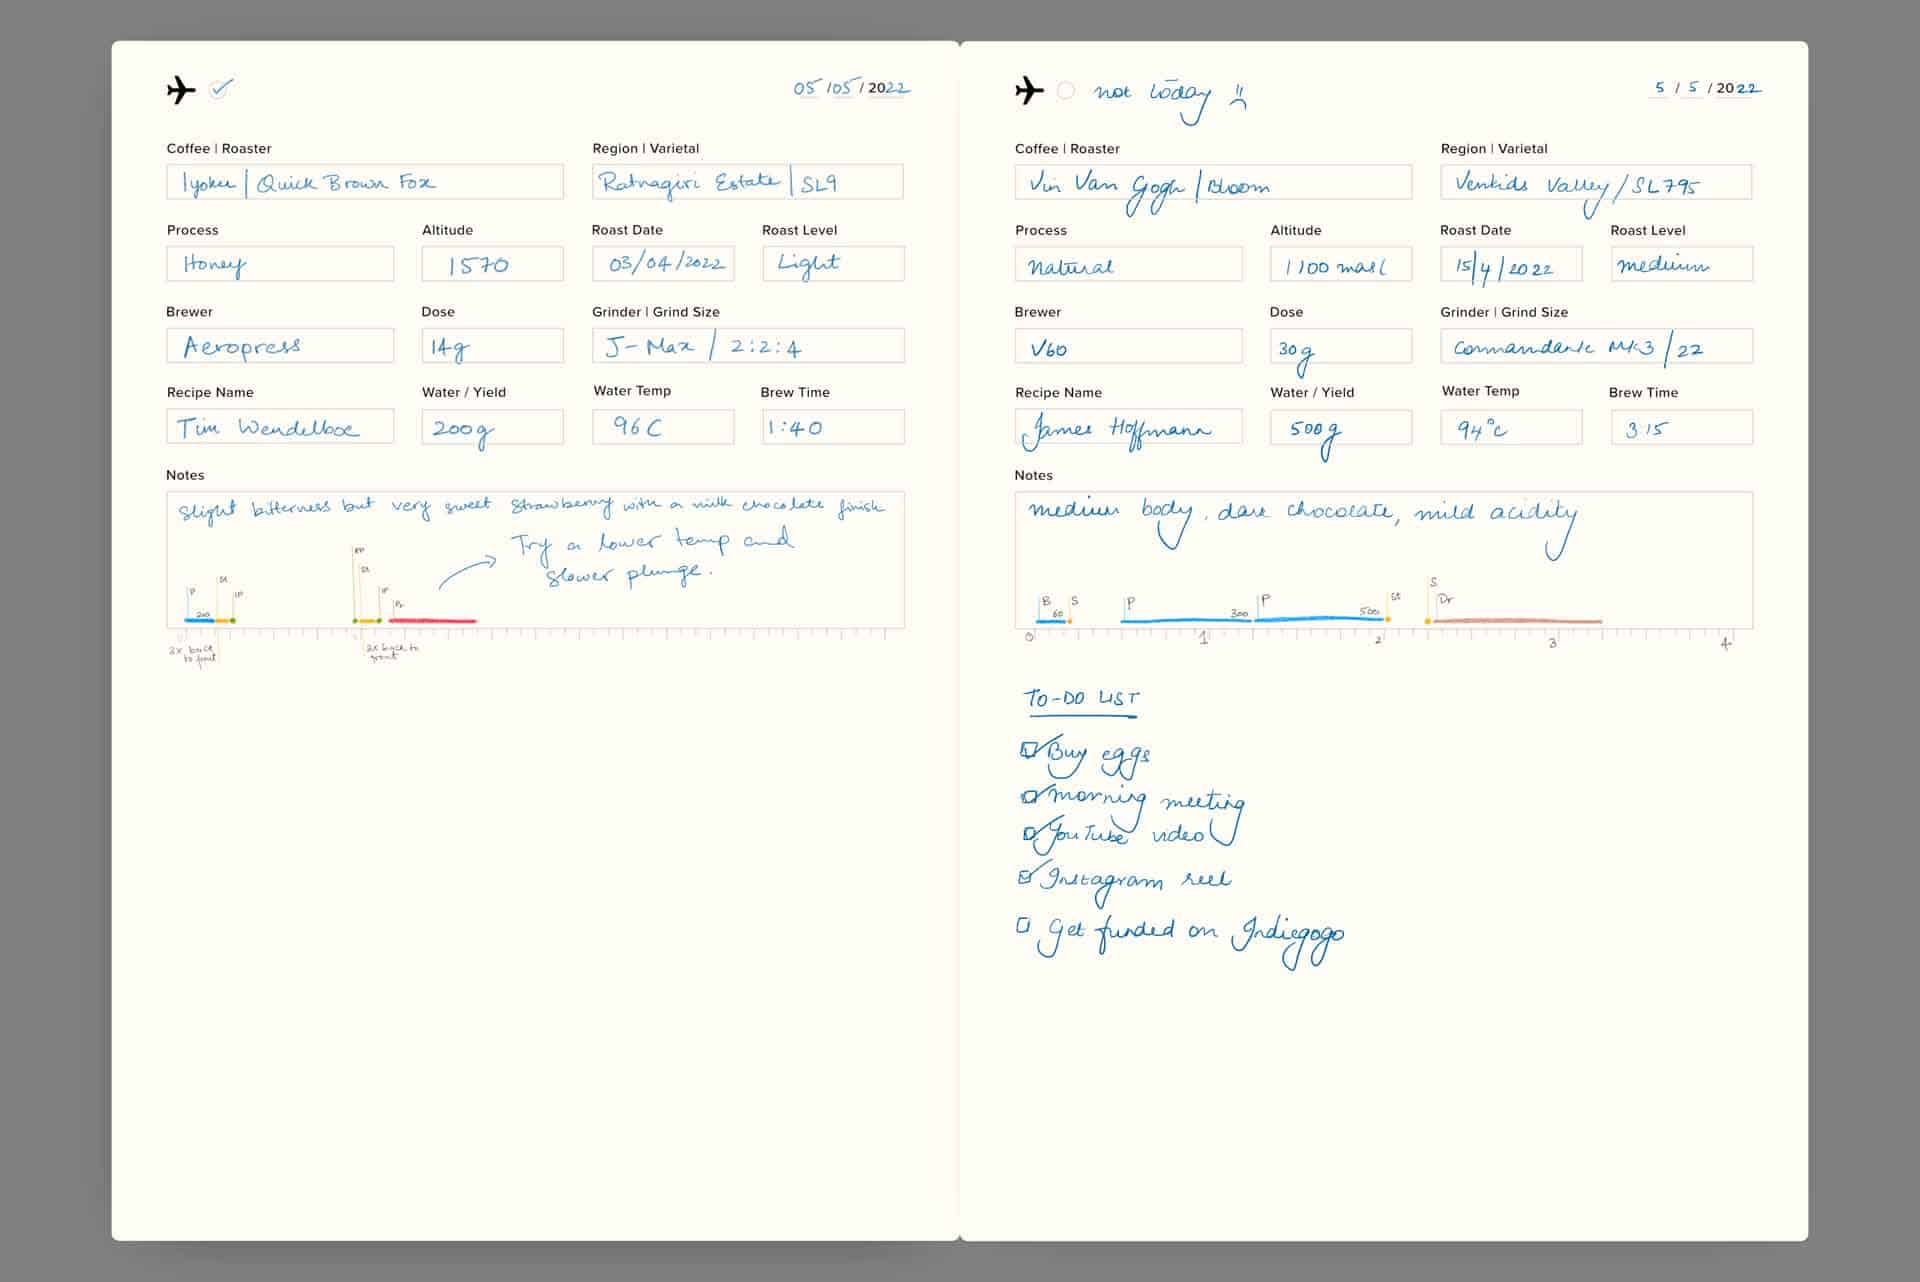 05/05/2022
Coffee | Roaster
Region | Varietal
Iyoku | Quick Brown Fox
Ratnagiri Estate | SL9
Process
Altitude
Roast Date
Roast Level
Honey
1570
03/04/2022
Light
Brewer
Dose
Grinder | Grind Size
Aeropress
14g
J-Max / 2:2:4
Recipe Name
Water / Yield
Water Temp
Brew Time
Tim Wendelboe
200g
96C
1:40
Notes
slight bitterness but very sweet strawberry with a milk chocolate finish
Try a lower temp and
slower plunge.
P
St
IP
200
RP
St
IP
Pr
3x back
to front
2x back to
front
not today
5/5/2022
Coffee | Roaster
Region | Varietal
Vin Van Gogh / Bloom
Venkids Valley / SL795
Process
Altitude
Roast Date
Roast Level
Natural
1100 masl
15/4/2022
medium
Brewer
Dose
Grinder | Grind Size
V60
30g
Commandante MK3 / 22
Recipe Name
Water / Yield
Water Temp
Brew Time
James Hoffmann
500g
94°C
3:15
Notes
medium body, dark chocolate, mild acidity
B
60
S
P
300
P
500
St
S
Dr
0 1 2 3 4
TO-DO LIST
Buy eggs
morning meeting
YouTube video
Instagram reel
Get funded on Indiegogo